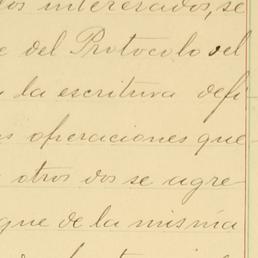 los interesados, se
e del Protocolo del
la escritura defi
as operaciones que
otros dos se agre
que de la misma